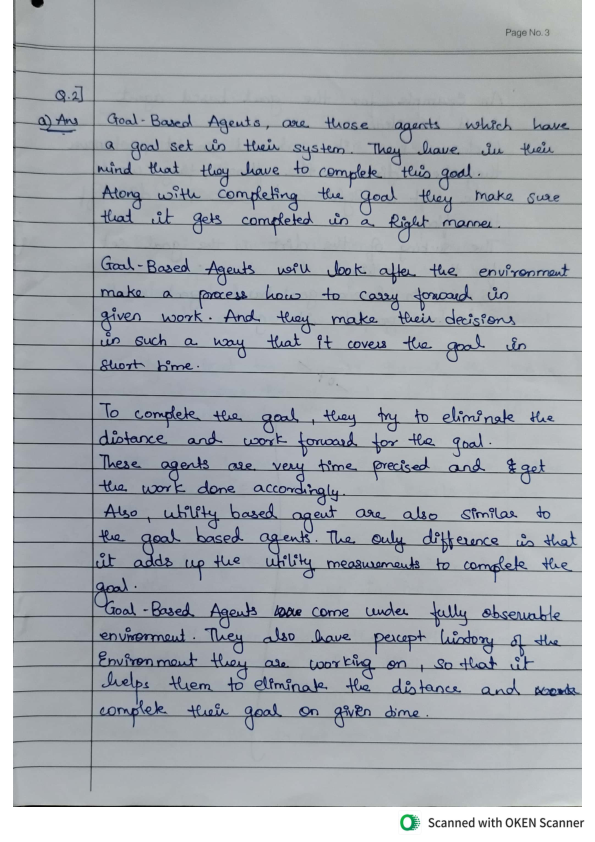 Page No. 3
Q.2]
a) Ans Goal-Based Agents, are those agents which have
a goal set in their system. They have in their
mind that they have to complete this goal.
Along with completing the goal they make sure
that it gets completed in a Right manner.
Goal-Based Agents will look after the environment
make a process how to carry forward in
given work. And they make their decisions
in such a way that it covers the goal in
short time.
To complete the goal, they try to eliminate the
distance and work forward for the goal.
These agents are very time precised and get
the work done accordingly.
Also, utility based agent are also similar to
the goal based agents. The only difference is that
it adds up the utility measurements to complete the
goal.
Goal-Based Agents come under fully observable
environment. They also have percept history of the
Environment they are working on, so that it
helps them to eliminate the distance and
complete their goal on given time.
Scanned with OKEN Scanner